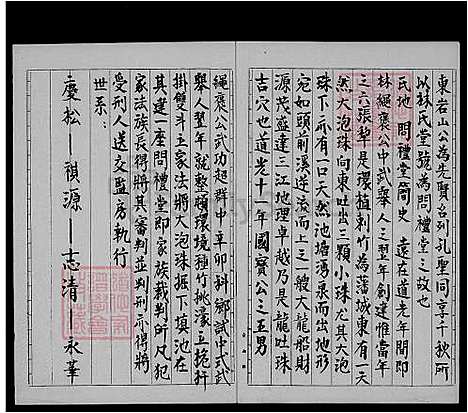 東岩山公為先賢召列孔聖同享千秋所
以林氏堂號為問禮堂之故也
氏地 問禮堂簡史 遠在道光年間即
林繩褒公中武舉人三翌年創建惟當年
三六張犁是環植刺竹為藩城東有一天
然大泡珠向東吐出三顆小珠尤其大泡
珠下亦有一口天然池塘湯泉而信形
宛如目前溪逆流而上之一般大龍船財
源茂盛達三江地理卓越乃是龍吐珠
吉穴也道光十一年國寶公之五男
繩褒公武功超群中辛卯科鄉試中式武
舉人翌年就整頓環境種竹挑濠立桅杆
掛雙斗立家法將大泡珠掘下填池在
其建一座問禮堂即家族裁判所凡犯
家法族長得將其審判並判刑亦得將
受刑人送交監房執行
世系：
慶松—祺源 志清—永華